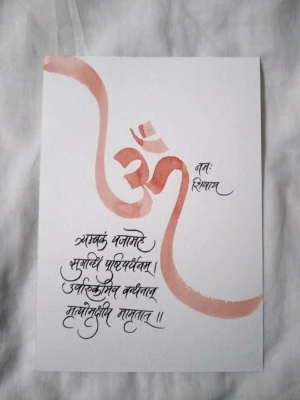 ॐ
नमः
शिवाय
त्र्यम्बकं यजामहे
सुगन्धिं पुष्टिवर्धनम् ।
उर्वारुकमिव बन्धनान्
मृत्योर्मुक्षीय मामृतात् ॥